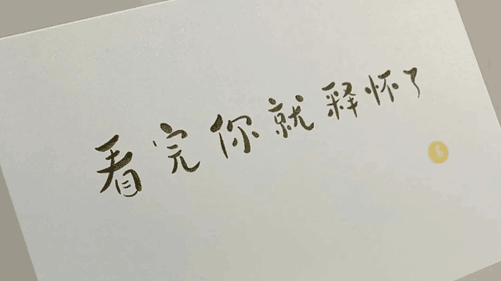 看完你就释怀了